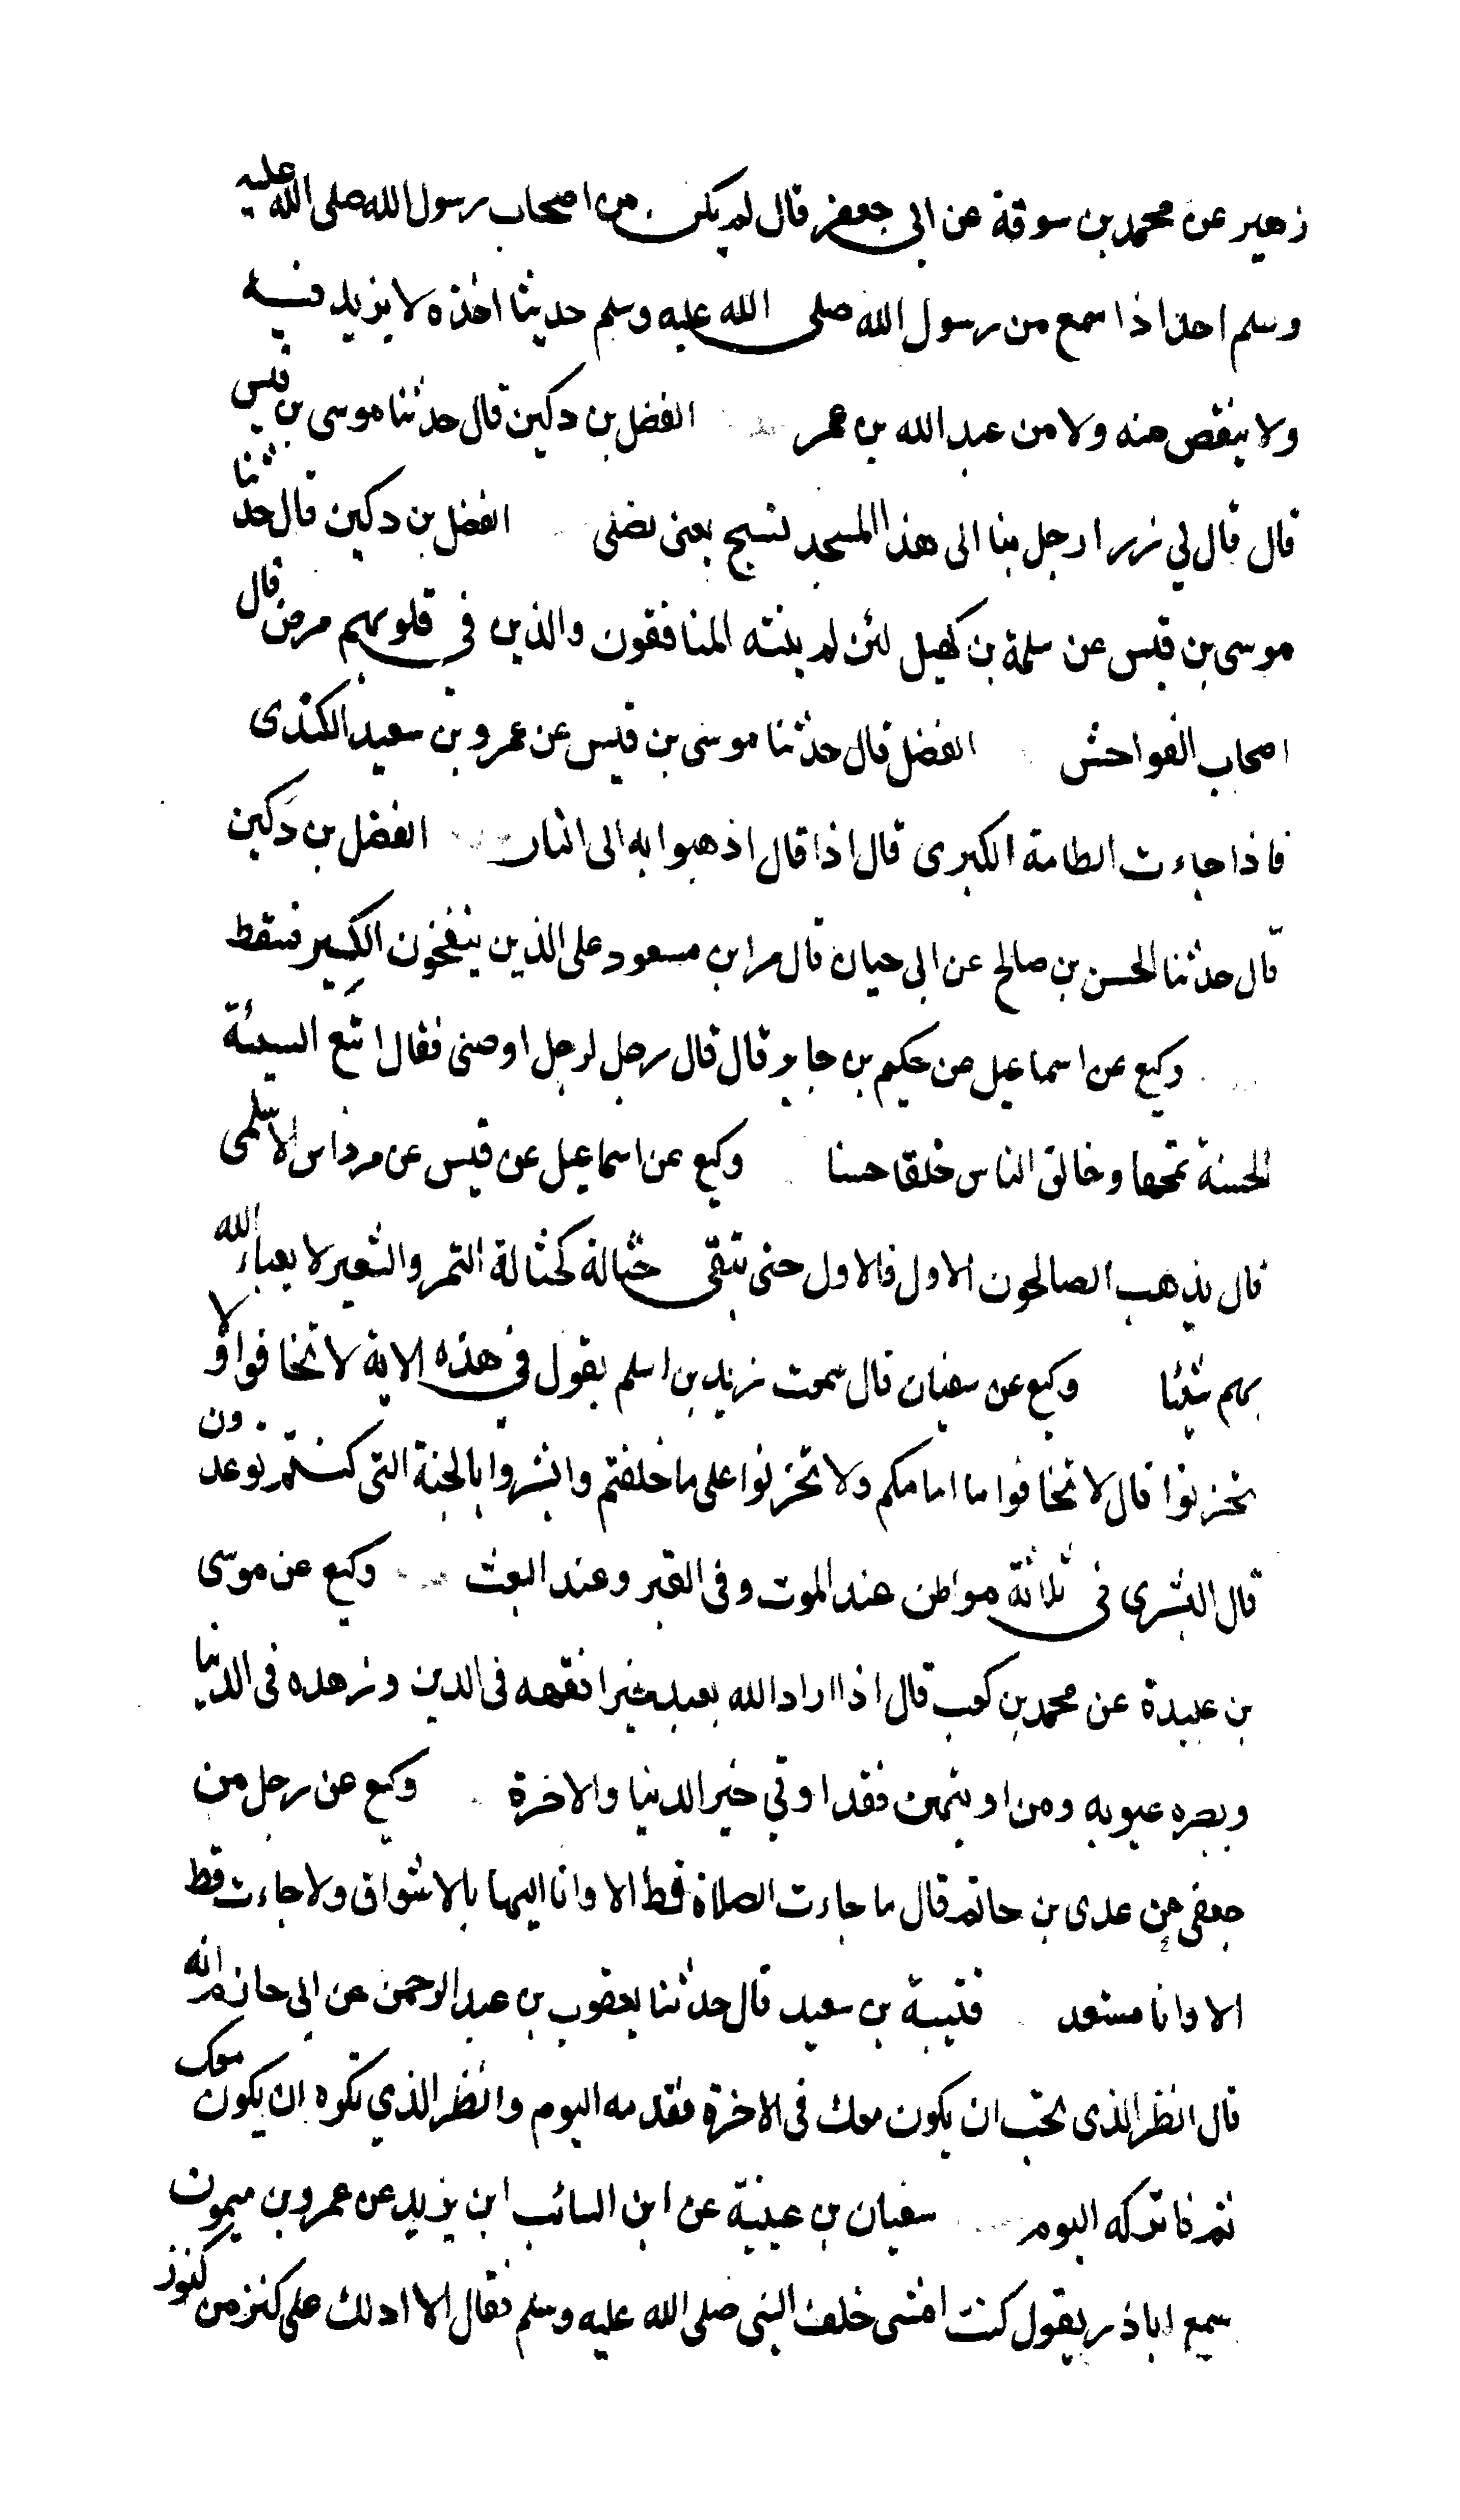 زهير عن محمد بن سوقة عن ابي جعفر قال لم يكن من اصحاب رسول الله صلى الله عليه
وسلم احد اذا سمع من رسول الله صلى الله عليه وسلم حديثا احذر لا يزيد فيه
ولا ينقص منه ولا من عبد الله بن عمر الفضل بن دكين قال حدثنا موسى بن قيس
قال قال لي زر ادخل بنا الى هذا المسجد نسبح يعنى نصلى الفضل بن دكين قال حدثنا
موسى بن قيس عن سلمة بن كهيل لئن لم ينته المنافقون والذين في قلوبهم مرض قال
اصحاب الفواحش الفضل قال حدثنا موسى بن قيس عن عمرو بن سعيد الكندى
فاذا جاءت الطامة الكبرى قال اذا قال اذهبوا به الى النار الفضل بن دكين
قال حدثنا الحسن بن صالح عن ابي حيان قال مر ابن مسعود على الذين ينفخون الكير فسقط
وكيع عن اسماعيل عن حكيم بن جابر قال قال رجل لرجل اوصنى فقال اتبع السيئة
الحسنة تمحها وخالق الناس خلقا حسنا وكيع عن اسماعيل عن قيس عن مرداس الاسلمى
قال يذهب الصالحون الاول فالاول حتى تبقى حثالة كحثالة التمر والشعير لا يعباء الله
بهم شيئا وكيع عن سفيان قال سمعت زيد بن اسلم يقول في هذه الاية لا تخافوا ولا
تحزنوا قال لا تخافوا ما امامكم ولا تحزنوا على ما خلفتم وابشروا بالجنة التى كنتم توعدون
قال البشرى فى ثلاثة مواطن عند الموت وفى القبر وعند البعث وكيع عن موسى
بن عبيدة عن محمد بن كعب قال اذا اراد الله بعبد خيرا فقهه فى الدين وزهده فى الدنيا
وبصره عيوبه ومن اوتيهن فقد اوتي خير الدنيا والاخرة وكيع عن رجل من
جعفى عن عدى بن حاتم قال ما جاءت الصلاة قط الا وانا اليها بالاشواق ولا جاءت قط
الا وانا مستعد قتيبة بن سعيد قال حدثنا يعقوب بن عبد الرحمن عن ابى حازم انه
قال انظر الذى تحب ان يكون معك فى الاخرة فقدمه اليوم وانظر الذي تكره ان يكون معك
ثم فاتركه اليوم سفيان بن عيينة عن ابن السائب ابن يزيد عن عمرو بن ميمون
سمع اباذر يقول كنت امشى خلف النبى صلى الله عليه وسلم فقال الا ادلك على كنز من كنوز